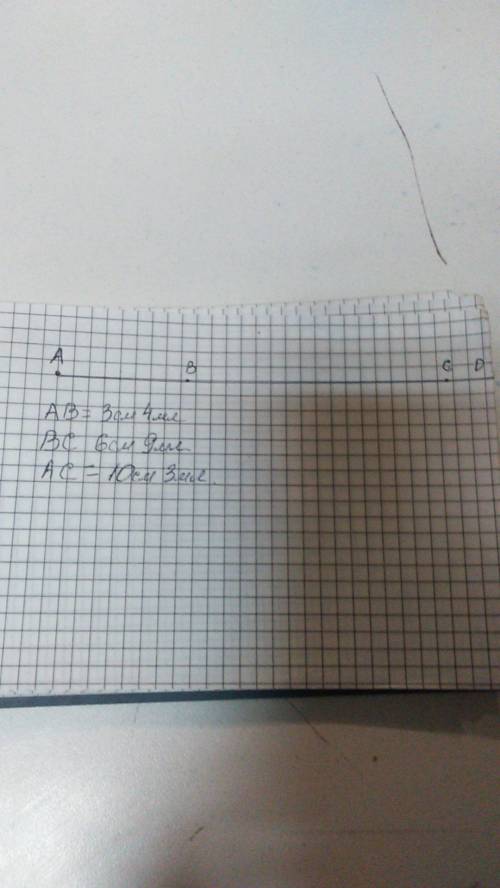 A B C D
AB = 3см 4мм
BC 6см 9мм
AC = 10см 3мм.